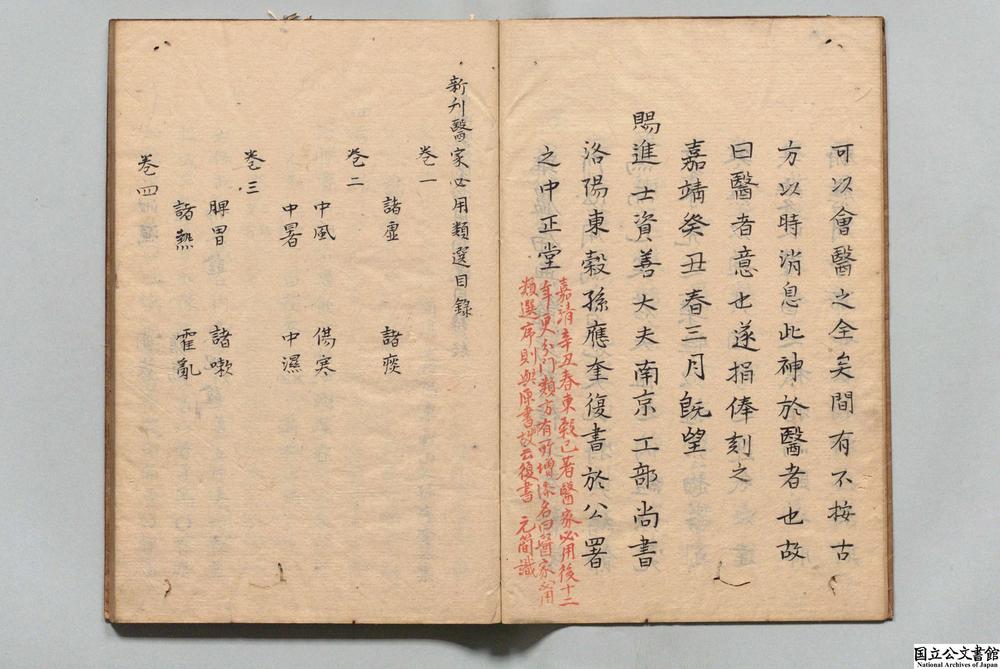 可以會醫之全矣間有不按古
方以時消息此神於醫者也故
曰醫者意也遂捐俸刻之
嘉靖癸丑春三月旣望
賜進士資善大夫南京工部尚書
洛陽東穀孫應奎復書於公署
之中正堂
嘉靖辛丑春東穀已著醫家必用後十二
年更分门類方有所增添名曰醫家必用
類選序則與原書故云復書 元簡識
新刋醫家必用類選目錄
卷一
諸虛 諸痰
卷二
中風 傷寒
中暑 中濕
卷三
脾胃 諸嗽
諸熱 霍亂
卷四
国立公文書館
National Archives of Japan